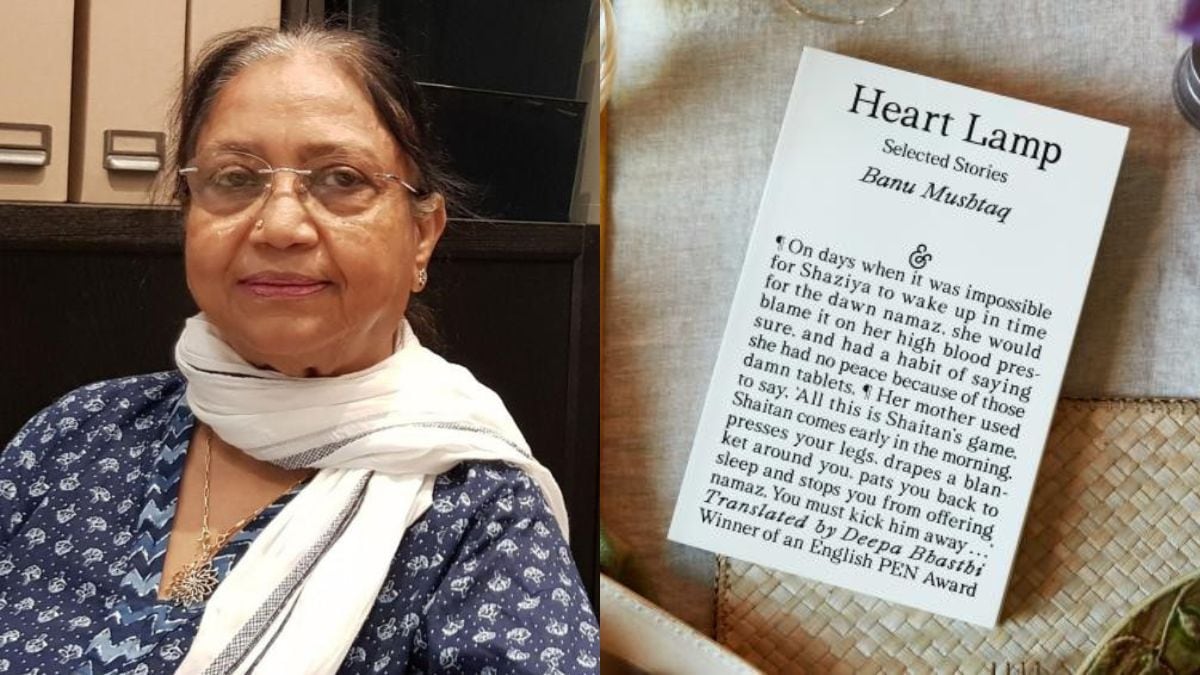 Heart Lamp
Selected Stories
Banu Mushtaq
&
¶ On days when it was impossible
for Shaziya to wake up in time
for the dawn namaz, she would
blame it on her high blood pres-
sure, and had a habit of saying
she had no peace because of those
damn tablets. ¶ Her mother used
to say, 'All this is Shaitan's game.
Shaitan comes early in the morning,
presses your legs, drapes a blan-
ket around you, pats you back to
sleep and stops you from offering
namaz. You must kick him away...
Translated by Deepa Bhasthi
Winner of an English PEN Award